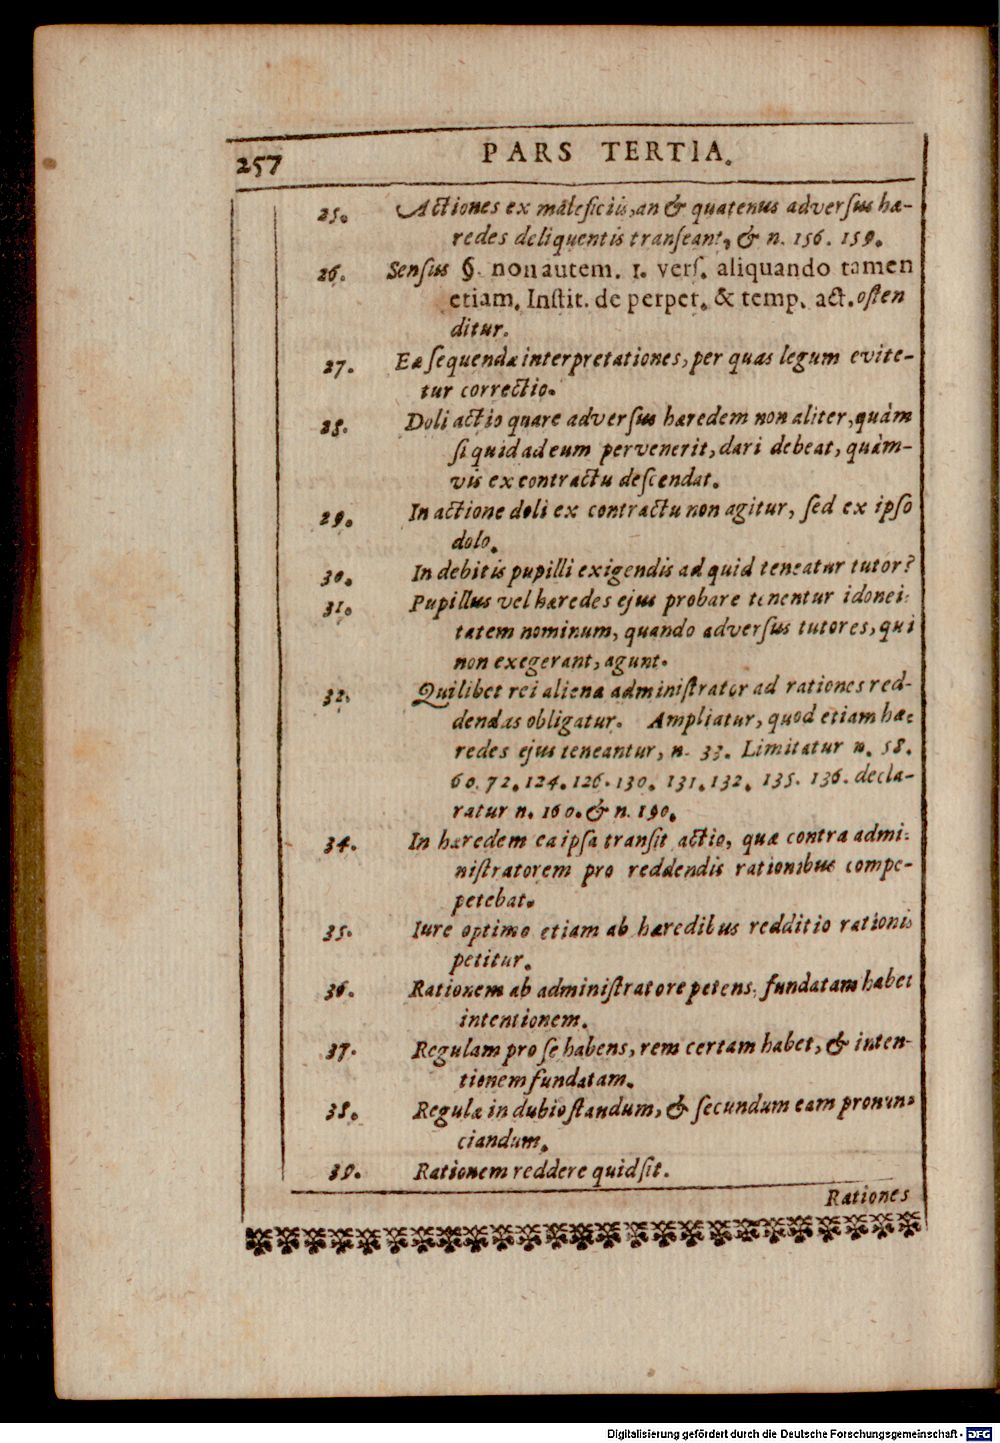 257 PARS TERTIA.
25. Actiones ex maleficiis, an & quatenus adversus hæ-
redes deliquentis transeant, & n. 156. 159.
26. Sensus §. non autem. 1. vers. aliquando tamen
etiam. Instit. de perpet. & temp. act. osten
ditur.
27. Eæ sequendæ interpretationes, per quas legum evite-
tur correctio.
28. Doli actio quare adversus hæredem non aliter, quàm
si quid ad eum pervenerit, dari debeat, quàm-
vis ex contractu descendat.
29. In actione doli ex contractu non agitur, sed ex ipso
dolo.
30. In debitis pupilli exigendis ad quid teneatur tutor?
31. Pupillus vel hæredes ejus probare tenentur idonei-
tatem nominum, quando adversus tutores, qui
non exegerant, agunt.
32. Quilibet rei alienæ administrator ad rationes red-
dendas obligatur. Ampliatur, quod etiam hæ-
redes ejus teneantur, n. 33. Limitatur n. 58.
60. 72. 124. 126. 130. 131. 132. 135. 136. decla-
ratur n. 160. & n. 190.
34. In hæredem ea ipsa transit actio, quæ contra admi-
nistratorem pro reddendis rationibus compe-
petebat.
35. Iure optimo etiam ab hæredibus redditio rationis
petitur.
36. Rationem ab administratore petens, fundatam habet
intentionem.
37. Regulam pro se habens, rem certam habet, & inten-
tionem fundatam.
38. Regulæ in dubio standum, & secundum eam pronun-
ciandum.
39. Rationem reddere quid sit.
Rationes
Digitalisierung gefördert durch die Deutsche Forschungsgemeinschaft - DFG